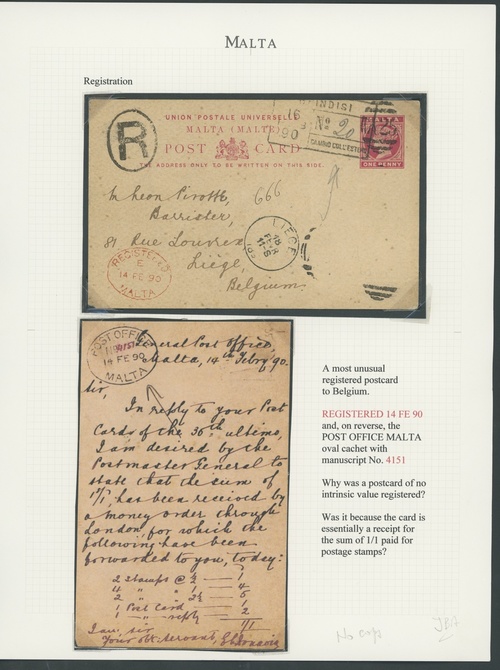 MALTA
Registration
UNION POSTALE UNIVERSELLE
MALTA (MALTE)
POST CARD
THE ADDRESS ONLY TO BE WRITTEN ON THIS SIDE.
R
BRINDISI
16
90
No 20
CAMBIO COLL'ESTERO
A 25
ONE PENNY
666
M Leon Pirotte,
Barrister,
81 Rue Louvrex
Liège,
Belgium.
LIEGE
REGISTERED
E
14 FE 90
MALTA
POST OFFICE
No 4151
14 FE 90
MALTA
General Post Office,
Malta, 14th Febry 90.
Sir,
In reply to your Post
Cards of the 30th ultimo,
I am desired by the
Postmaster General to
state that the sum of
1/1 has been received by
a money order through
London for which the
following have been
forwarded to you, today:
2 Stamps @ ½ — 1
4 " " 1 — 4
2 " " 2½ — 5
1 Post Card — 1
1 " " reply — 2
1/1
I am, Sir,
Your obt. Servant,
A most unusual
registered postcard
to Belgium.
REGISTERED 14 FE 90
and, on reverse, the
POST OFFICE MALTA
oval cachet with
manuscript No. 4151
Why was a postcard of no
intrinsic value registered?
Was it because the card is
essentially a receipt for
the sum of 1/1 paid for
postage stamps?
No copy